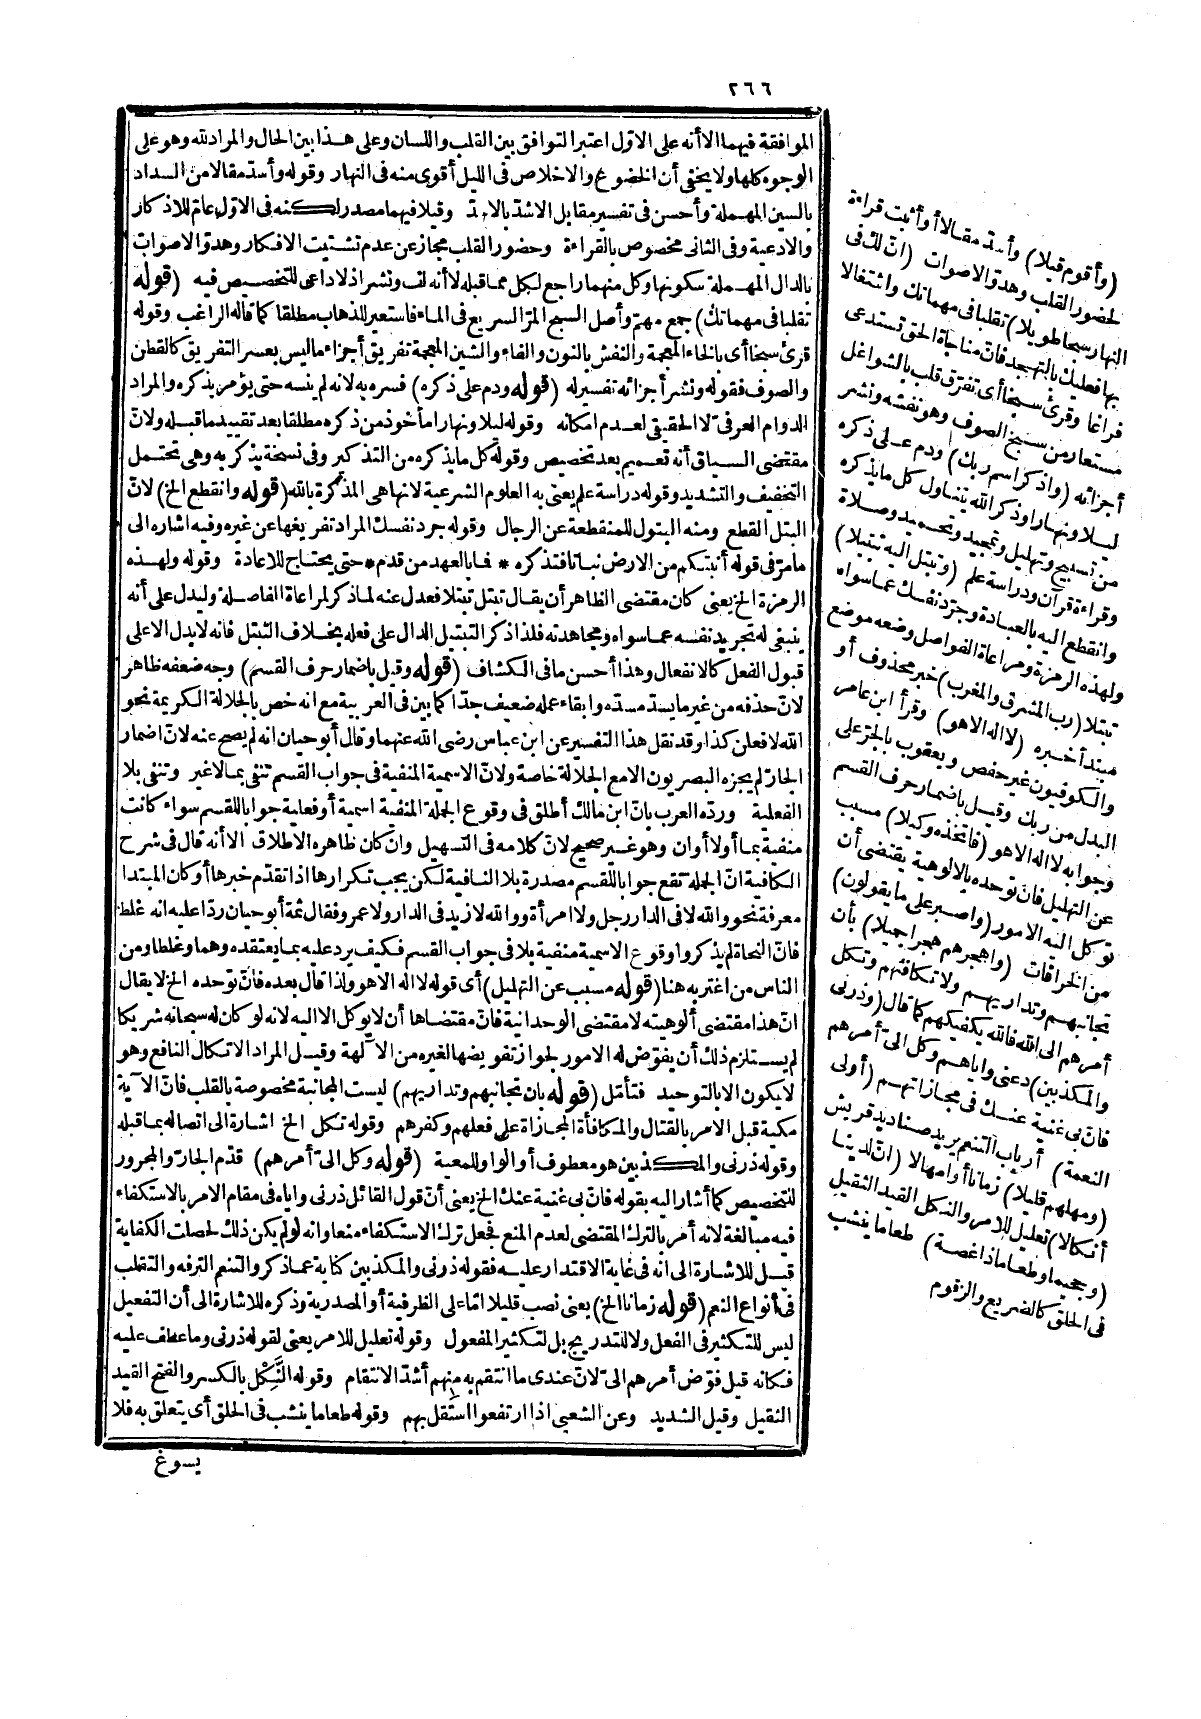 ٢٦٦
الموافقة فيهما الا أنه على الاوّل اعتبر التوافق بين القلب واللسان وعلى هذا بين الحال والمراد لله وهو على
الوجوه كلها ولا يخفى أن الخضوع والاخلاص فى الليل أقوى منه فى النهار وقوله وأسدّ مقالا من السداد
بالسين المهملة وأحسن فى تفسير مقابل الاشد بالاسد وقيلا فيهما مصدر لكنه فى الاوّل عامّ للاذكار
والادعية وفى الثانى مخصوص بالقراءة وحضور القلب مجاز عن عدم تشتيت الافكار وهدوّ الاصوات
بالدال المهملة سكونها وكل منهما راجع لكل مما قبله لا أنه لف ونشر اذ لا داعى للتخصيص فيه (قوله
تقلبا فى مهماتك) جمع مهمّ وأصل السبح المرّ السريع فى الماء فاستعير للذهاب مطلقا كما قاله الراغب وقوله
قرئ سبخا أى بالخاء المعجمة والنفش بالنون والفاء والشين المعجمة تفريق أجزاء ما ليس بعسر التفريق كالقطن
والصوف فقوله ونشر أجزائه تفسير له (قوله ودم على ذكره) فسره به لانه لم ينسه حتى يؤمر بذكره والمراد
الدوام العرفىّ لا الحقيقى لعدم امكانه وقوله ليلا ونهارا مأخوذ من ذكره مطلقا بعد تقييد ما قبله ولانّ
مقتضى السياق أنه تعميم بعد تخصيص وقوله كل ما يذكره من التذكير وفى نسخة يذكر به وهى تحتمل
التخفيف والتشديد وقوله دراسة علم يعنى به العلوم الشرعية لانها هى المذكرة بالله (قوله وانقطع الخ) لانّ
البتل القطع ومنه البتول للمنقطعة عن الرجال وقوله جرد نفسك المراد تفريغها عن غيره وفيه اشارة الى
ما مرّ فى قوله أنبتكم من الارض نباتا فتذكره * فما بالعهد من قدم * حتى يحتاج للاعادة وقوله ولهذه
الرمزة الخ يعنى كان مقتضى الظاهر أن يقال تبتل تبتلا فعدل عنه لما ذكر لمراعاة الفاصلة وليدل على أنه
ينبغى له تجريد نفسه عما سواه ومجاهدته فلذا ذكر التبتيل الدال على فعله بخلاف التبتل فانه لا يدل الا على
قبول الفعل كالانفعال وهذا أحسن ما فى الكشاف (قوله وقيل باضمار حرف القسم) وجه ضعفه ظاهر
لانّ حذفه من غير ما يسدّ مسدّه وابقاء عمله ضعيف جدّا كما بين فى العربية مع انه خص بالجلالة الكريمة نحو
الله لافعلن كذا وقد نقل هذا التفسير عن ابن عباس رضى الله عنهما وقال أبو حيان انه لم يصح عنه لانّ اضمار
الجارّ لم يجزه البصريون الا مع الجلالة خاصة ولانّ الاسمية المنفية فى جواب القسم تنفى بما لا غير وتنفى بلا
الفعلية وردّه العرب بانّ ابن مالك أطلق فى وقوع الجملة المنفية اسمية أو فعلية جوابا للقسم سواء كانت
منفية بما أو لا أو ان وهو غير صحيح لانّ كلامه فى التسهيل وان كان ظاهره الاطلاق الا أنه قال فى شرح
الكافية انّ الجملة تقع جوابا للقسم مصدرة بلا النافية لكن يجب تكرارها اذا تقدّم خبرها أو كان المبتدا
معرفة نحو والله لا فى الدار رجل ولا امرأة ووالله لا زيد فى الدار ولا عمرو فقال ثمة أبو حيان ردّا عليه انه غلط
فانّ النحاة لم يذكروا وقوع الاسمية منفية بلا فى جواب القسم فكيف يرد عليه بما يعتقده وهما وغلطا ومن
الناس من اغتر به هنا (قوله مسبب عن التهليل) أى قوله لا اله الا هو ولذا قال بعده فانّ توحده الخ لا يقال
انّ هذا مقتضى ألوهيته لا مقتضى الوحدانية فانّ مقتضاها أن لا يوكل الا اليه لانه لو كان له سبحانه شريكا
لم يستلزم ذلك أن يفوّض له الامور لجواز تفويضها لغيره من الآلهة وقيل المراد الاتكال النافع وهو
لا يكون الا بالتوحيد فتأمّل (قوله بان تجانبهم وتداريهم) ليست المجانبة مخصوصة بالقلب فانّ الآية
مكية قبل الامر بالقتال والمكافأة المجازاة على فعلهم وكفرهم وقوله تكل الخ اشارة الى اتصاله بما قبله
وقوله ذرنى والمكذبين هو معطوف أو الواو للمعية (قوله وكل الىّ أمرهم) قدّم الجارّ والمجرور
للتخصيص كما أشار اليه بقوله فانّ بى غنية عنك الخ يعنى أنّ قول القائل ذرنى واياه فى مقام الامر بالاستكفاء
فيه مبالغة لانه أمر بالترك المقتضى لعدم المنع فجعل ترك الاستكفاء منعا وانه لو لم يكن ذلك لحصلت الكفاية
قبل للاشارة الى انه فى غاية الاقتدار عليه فقوله ذرنى والمكذبين كناية عما ذكر والتنعم الترفه والتقلب
فى أنواع النعم (قوله زمانا الخ) يعنى نصب قليلا امّا على الظرفية أو المصدرية وذكره للاشارة الى أن التفعيل
ليس للتكثير فى الفعل ولا للتدريج بل لتكثير المفعول وقوله تعليل للامر يعنى لقوله ذرنى وما عطف عليه
فكانه قيل فوّض أمرهم الىّ لانّ عندى ما انتقم به منهم أشدّ الانتقام وقوله النِّكْل بالكسر والفتح القيد
الثقيل وقيل الشديد وعن الشعبى اذا ارتفعوا استقل بهم وقوله طعاما ينشب فى الحلق أى يتعلق به فلا
يسوغ
(وأقوم قيلا) وأسدّ مقالا أو أثبت قراءة
لحضور القلب وهدوّ الاصوات (انّ لك فى
النهار سبحا طويلا) تقلبا فى مهماتك واشتغالا
بها فعليك بالتهجد فانّ مناجاة الحق تستدعى
فراغا وقرئ سبخا أى تفرّق قلب بالشواغل
مستعار من سبخ الصوف وهو نفشه ونشر
أجزائه (واذكر اسم ربك) ودم على ذكره
ليلا ونهارا وذكر الله يتناول كل ما يذكره
من تسبيح وتهليل وتمجيد وتحميد وصلاة
وقراءة قرآن ودراسة علم (وتبتل اليه تبتيلا)
وانقطع اليه بالعبادة وجرّد نفسك عما سواه
ولهذه الرمزة ومراعاة الفواصل وضعه موضع
تبتلا (رب المشرق والمغرب) خبر محذوف أو
مبتدأ خبره (لا اله الا هو) وقرأ ابن عامر
والكوفيون غير حفص ويعقوب بالجرّ على
البدل من ربك وقيل باضمار حرف القسم
وجوابه لا اله الا هو (فاتخذه وكيلا) مسبب
عن التهليل فانّ توحده بالالوهية يقتضى أن
توكل اليه الامور (واصبر على ما يقولون)
من الخرافات (واهجرهم هجرا جميلا) بأن
تجانبهم وتداريهم ولا تكافئهم وتكل
أمرهم الى الله فالله يكفيكهم كما قال (وذرنى
والمكذبين) دعنى واياهم وكل الىّ أمرهم
فانّ بى غنية عنك فى مجازاتهم (أولى
النعمة) أرباب التنعم يريد صناديد قريش
(ومهلهم قليلا) زمانا أو امهالا (انّ لدينا
أنكالا) تعليل للامر والنكل القيد الثقيل
(وجحيما وطعاما ذا غصة) طعاما ينشب
فى الحلق كالضريع والزقوم